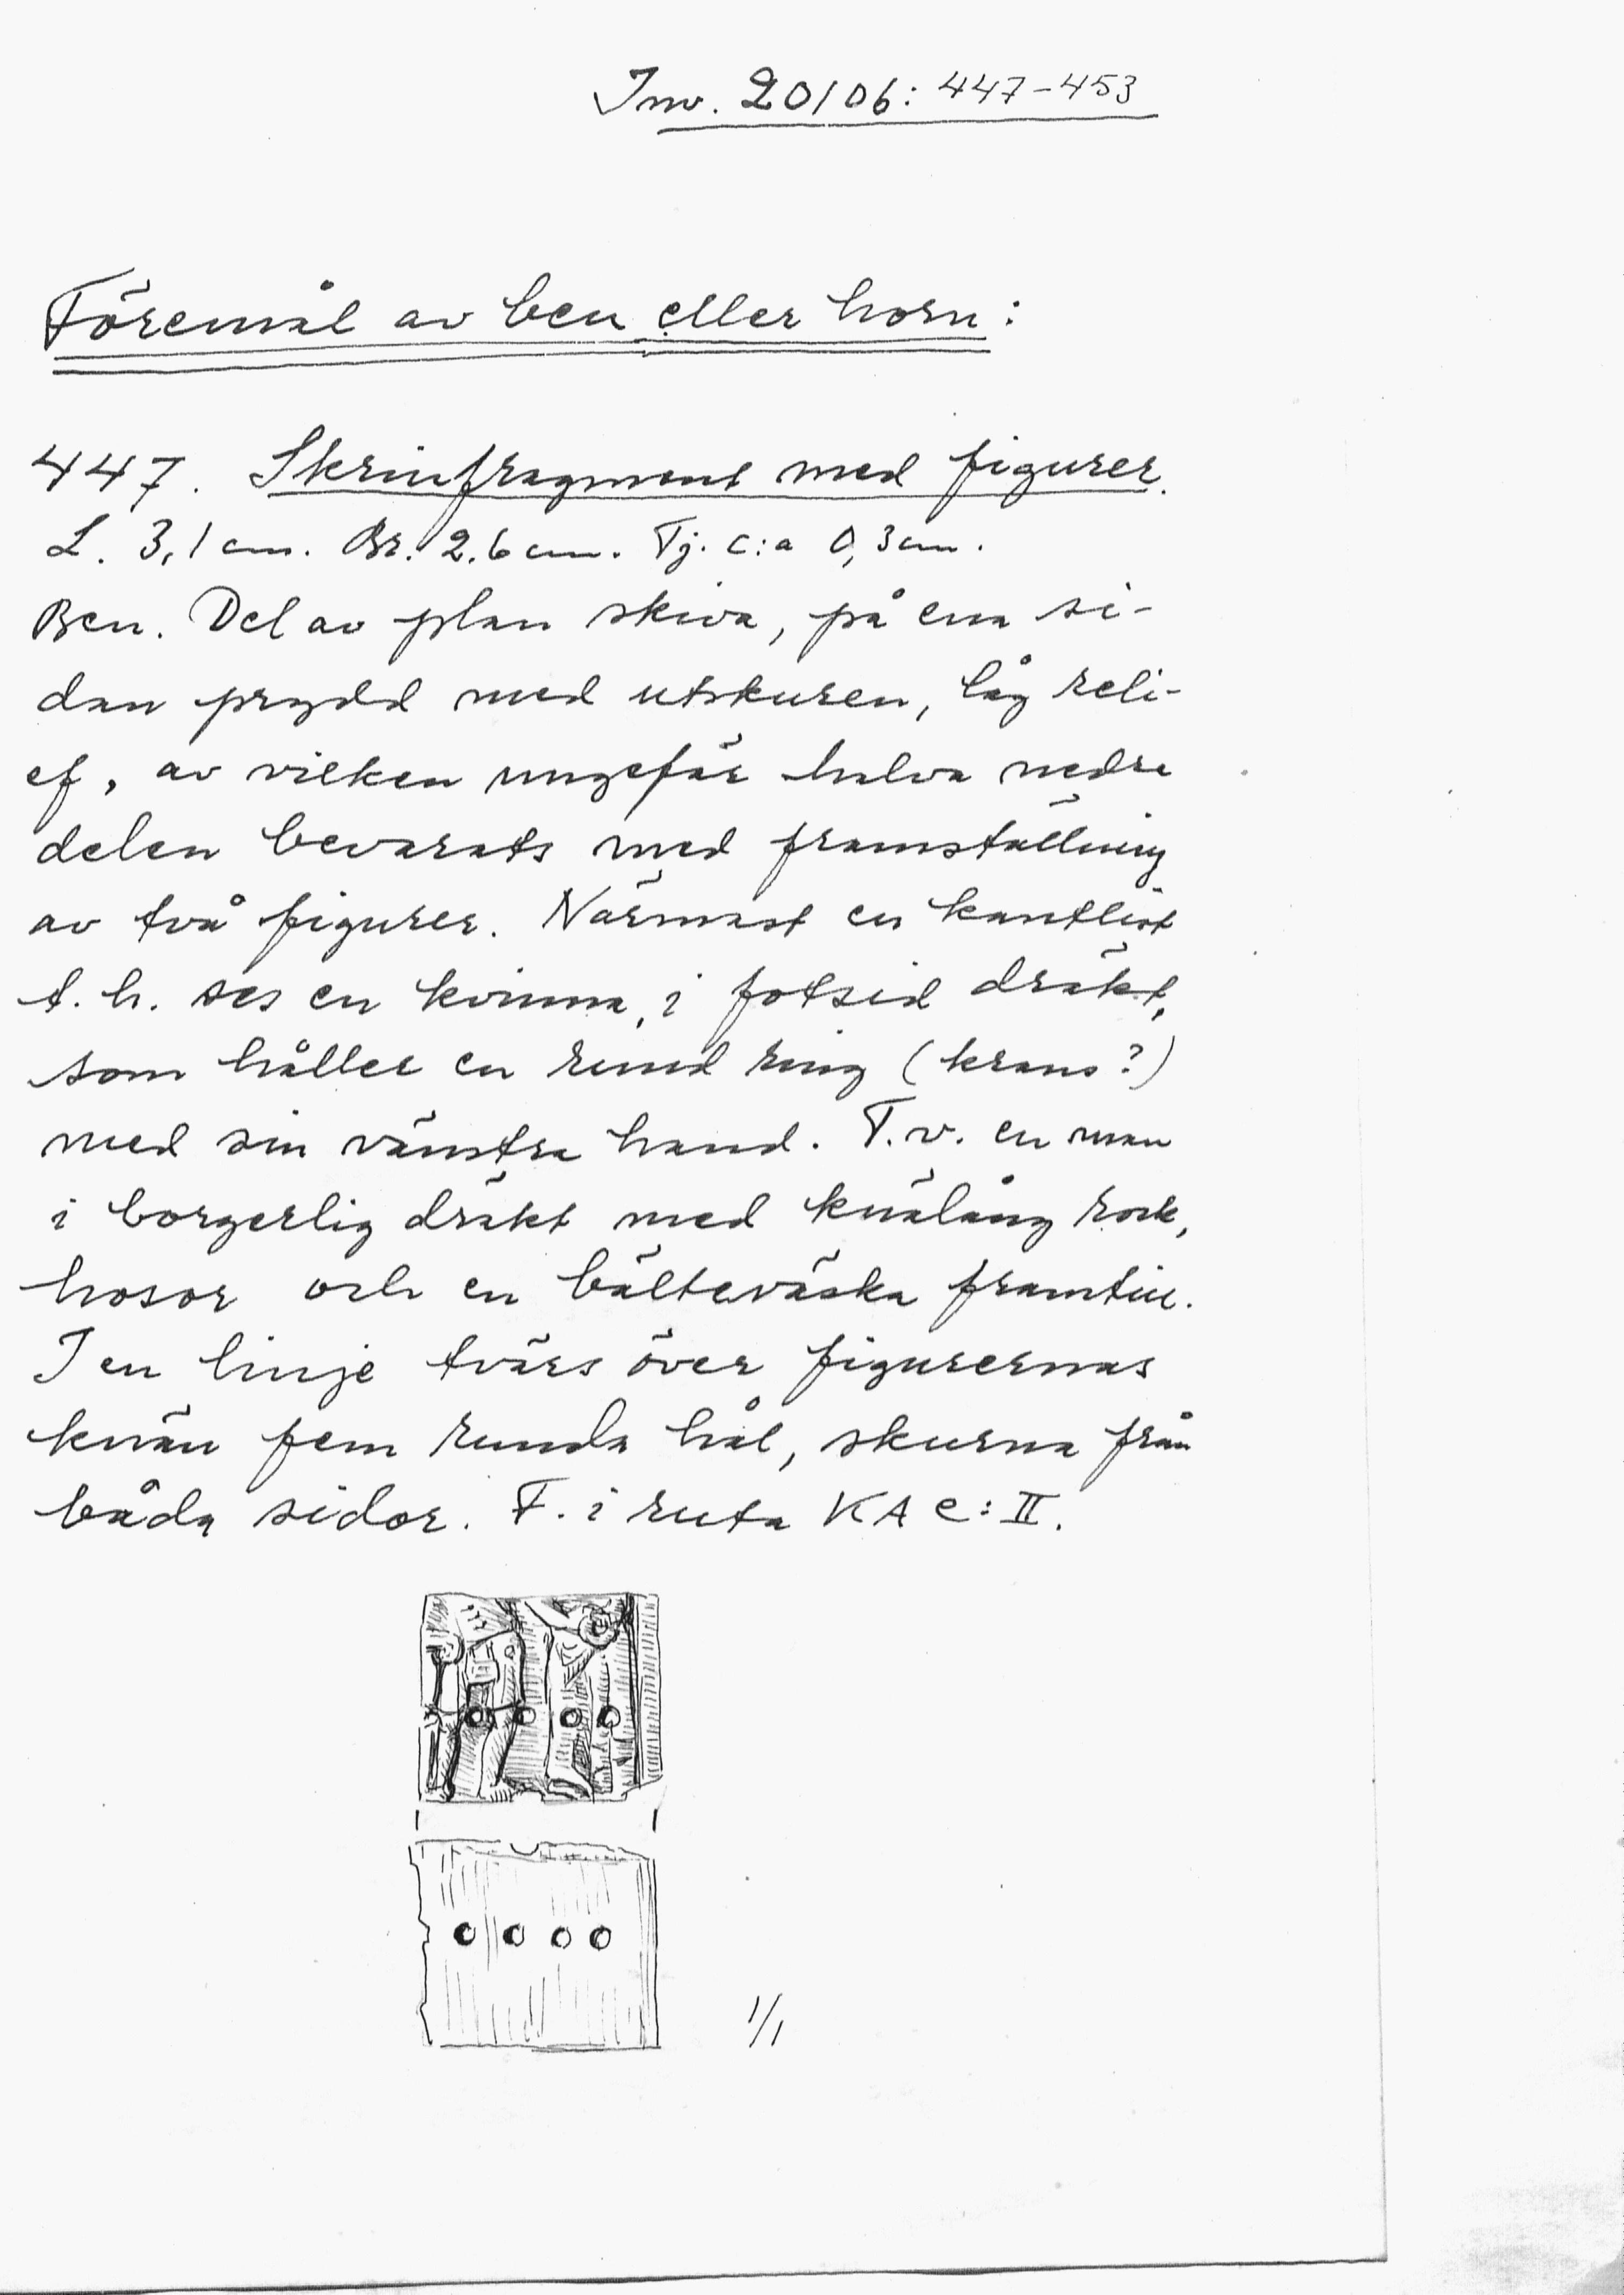 Inv. 20106: 447-453
Föremål av ben eller horn:
447. Skrinfragment med figurer.
L. 3,1 cm. Br. 2,6 cm. Tj. c:a 0,3 cm.
Ben. Del av plan skiva, på ena si-
dan prydd med utskuren, låg reli-
ef, av vilken ungefär halva nedre
delen bevarats med framställning
av två figurer. Närmast en kantlist
t.h. ses en kvinna, i fotsid dräkt,
som håller en rund ring (krans?)
med sin vänstra hand. T.v. en man
i borgerlig dräkt med knälång rock,
hosor och en bälteväska framtill.
I en linje tvärs över figurernas
knän fem runda hål, skurna från
båda sidor. F. i ruta KA C:II.
1/1